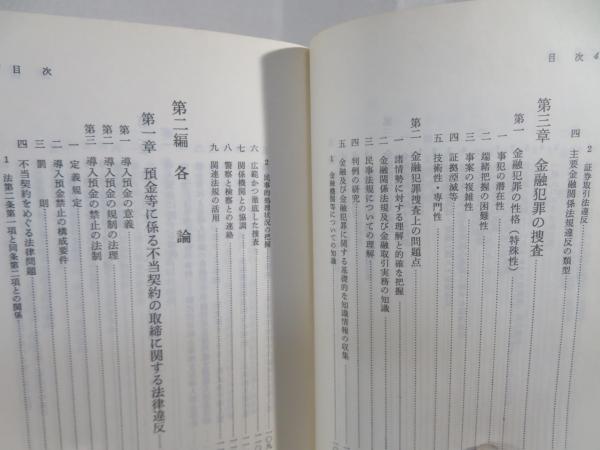 目次 4
2 証券取引法違反
四 主要金融関係法規違反の類型
第三章 金融犯罪の捜査
第一 金融犯罪の性格（特殊性）
一 事犯の潜在性
二 端緒把握の困難性
三 事案の複雑性
四 証拠湮滅等
五 技術性・専門性
第二 金融犯罪捜査上の問題点
一 諸情勢に対する理解と的確な把握
二 金融関係法規及び金融取引実務の知識
三 民事法規についての理解
四 判例の研究
五 金融及び金融犯罪に関する基礎的な知識情報の収集
1 金融機関等についての知識
目次
2 民事的処理状況の把握
六 広範かつ徹底した捜査
七 関係機関との協調
八 警察と検察との連絡
九 関連法規の活用
第二編 各論
第一章 預金等に係る不当契約の取締に関する法律違反
第一 導入預金の意義
第二 導入預金の規制の法理
第三 導入預金の禁止の法制
一 定義規定
二 導入預金禁止の構成要件
三 罰則
四 不当契約をめぐる法律問題
1 法第二条第一項と同条第二項との関係